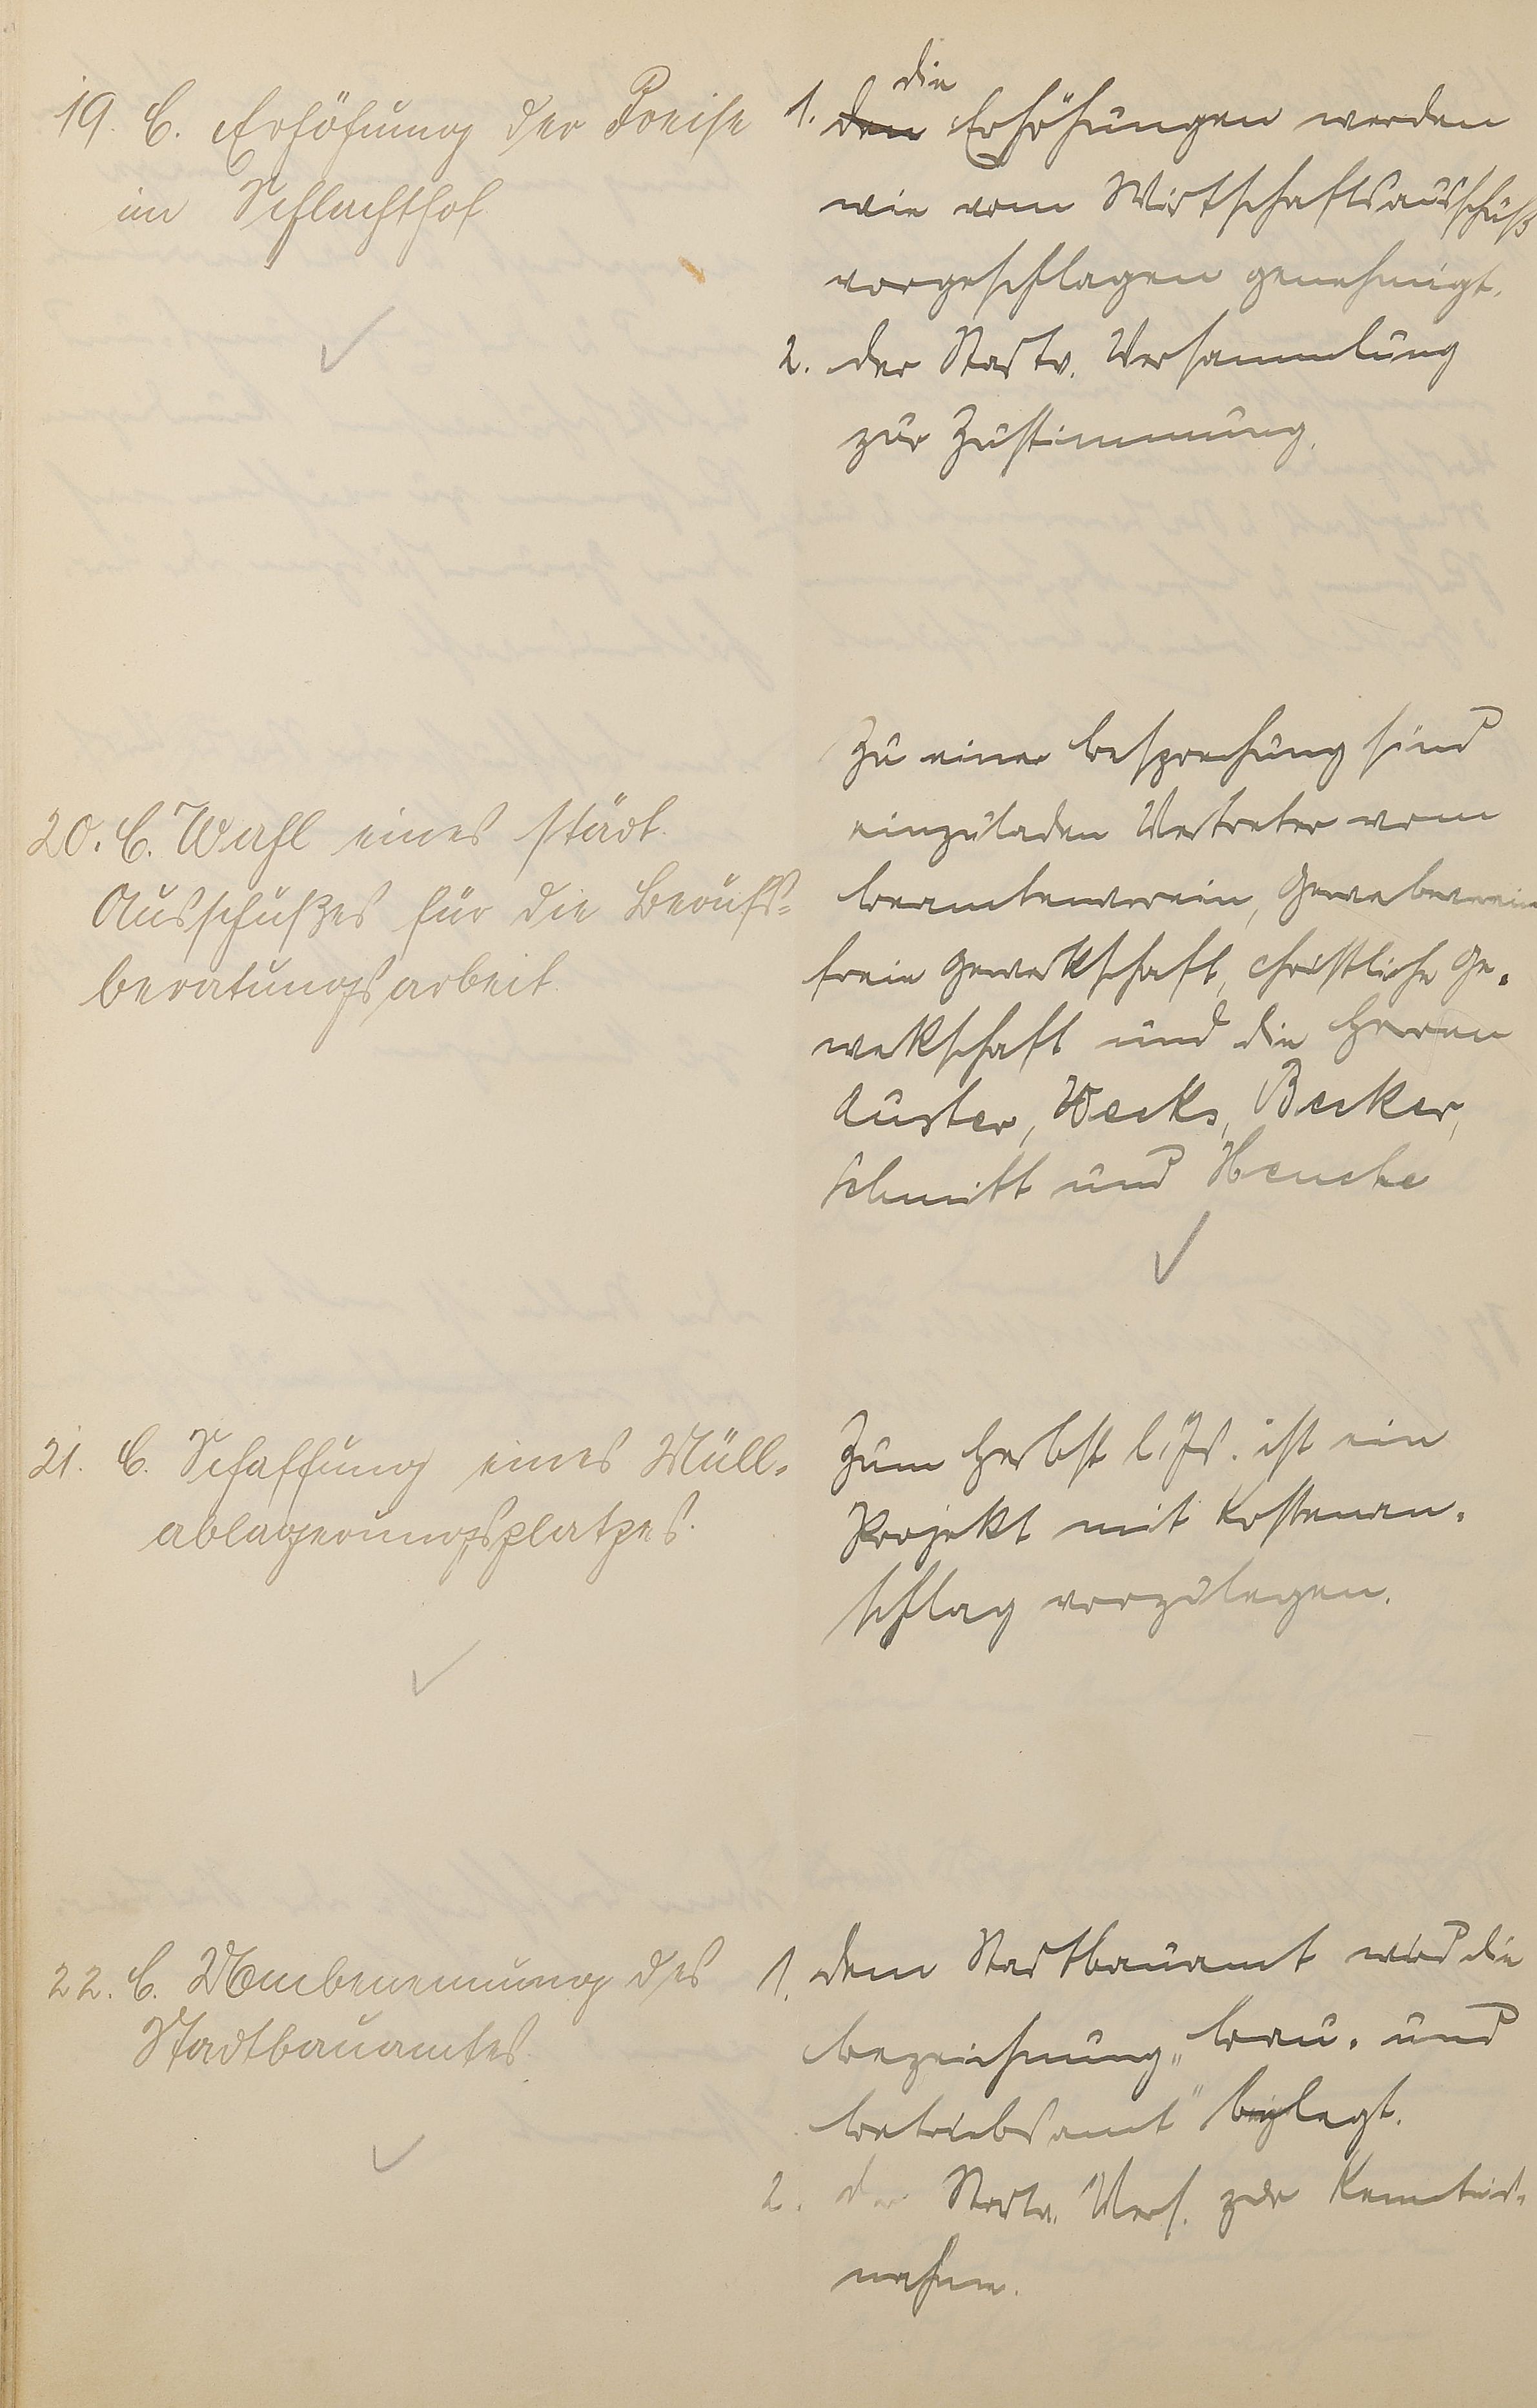 19. C. Erhöhung der Preise
im Schlachthof
1. die
den Erhöhungen werden
wie vom Wirtschaftsausschuß
vorgeschlagen genehmigt.
2. der Stadtv. Versammlung
zur Zustimmung.
20. C. Wahl eines städt.
Ausschußes für die Berufs=
beratungsarbeit.
Zu einer Besprechung sind
einzuladen Vertreter vom
Beamtenverein, Gewerbeverein
freie Gewerkschaft, christliche Ge-
werkschaft und die Herren
Auster, Weeks, Becker,
Schmitt und Henche
21. C. Schaffung eines Müll-
ablagerungsplatzes.
Zum Herbst l. Js. ist ein
Projekt mit Kostenan-
schlag vorzulegen.
22. C. Umbenennung des
Stadtbauamtes.
1. dem Stadtbauamt wird die
Bezeichnung „Bau- und
Betriebsamt" beigelegt.
2. der Stadtv. Vers. zur Kenntnis-
nahme.